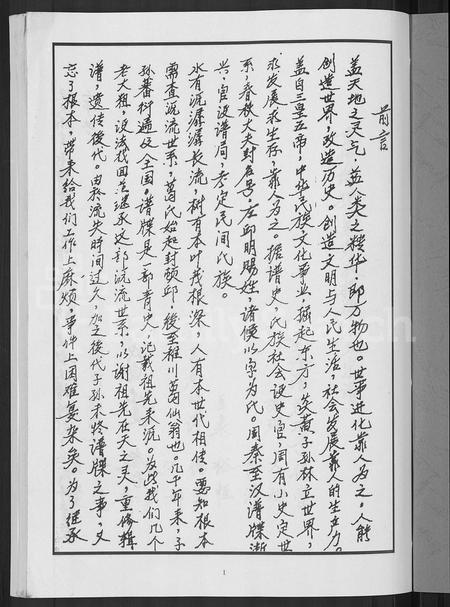 前言
盖天地之灵气，益人类之精华，即万物也。世事进化靠人为之。人能
创造世界，改造历史。创造文明与人民生活，社会发展靠人的生产力。
盖自三皇五帝，中华民族文化事业，掘起东方，炎黄子孙林立世界，
求发展求生存，靠人为之。据谱史，氏族社会设史官，周有小史定世
系，春秋大夫封名号。左邱明赐姓，诸侯以字为氏。周秦至汉谱牒渐
兴，官设谱局，考定民间氏族。
水有源潺潺长流，树有本叶茂根深，人有本世代相传。要知根本
需查源流世系，葛氏始起封顿邱，後至稚川葛仙翁也。几千年来，子
孙蕃衍遍及全国。谱牒是一部青史，记载祖先来源。为此我们几个
老大粗，设法找回并继承这部源流世系，以谢祖先在天之灵，重修辑
谱，遗传後代。由於流失时间过久，加之後代子孙未修谱牒之事，又
忘了根本，带来给我们工作上麻烦，事件上困难复杂矣。为了继承
1